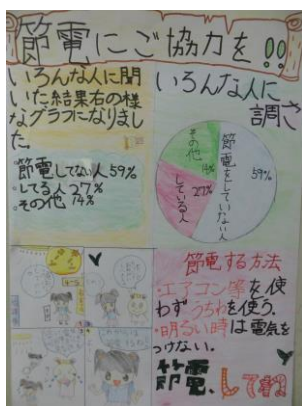 節電にご協力を!!
いろんな人に聞
いた結果右の様
なグラフになりまし
た
節電してない人 59%
・してる人 27%
・その他 14%
いろんな人に
調さ
節電をしていない人
59%
している人
27%
その他
14%
節電する方法
・エアコン等を使
わずうちわを使う.
・明るい時は電気を
つけない.
節電.してね